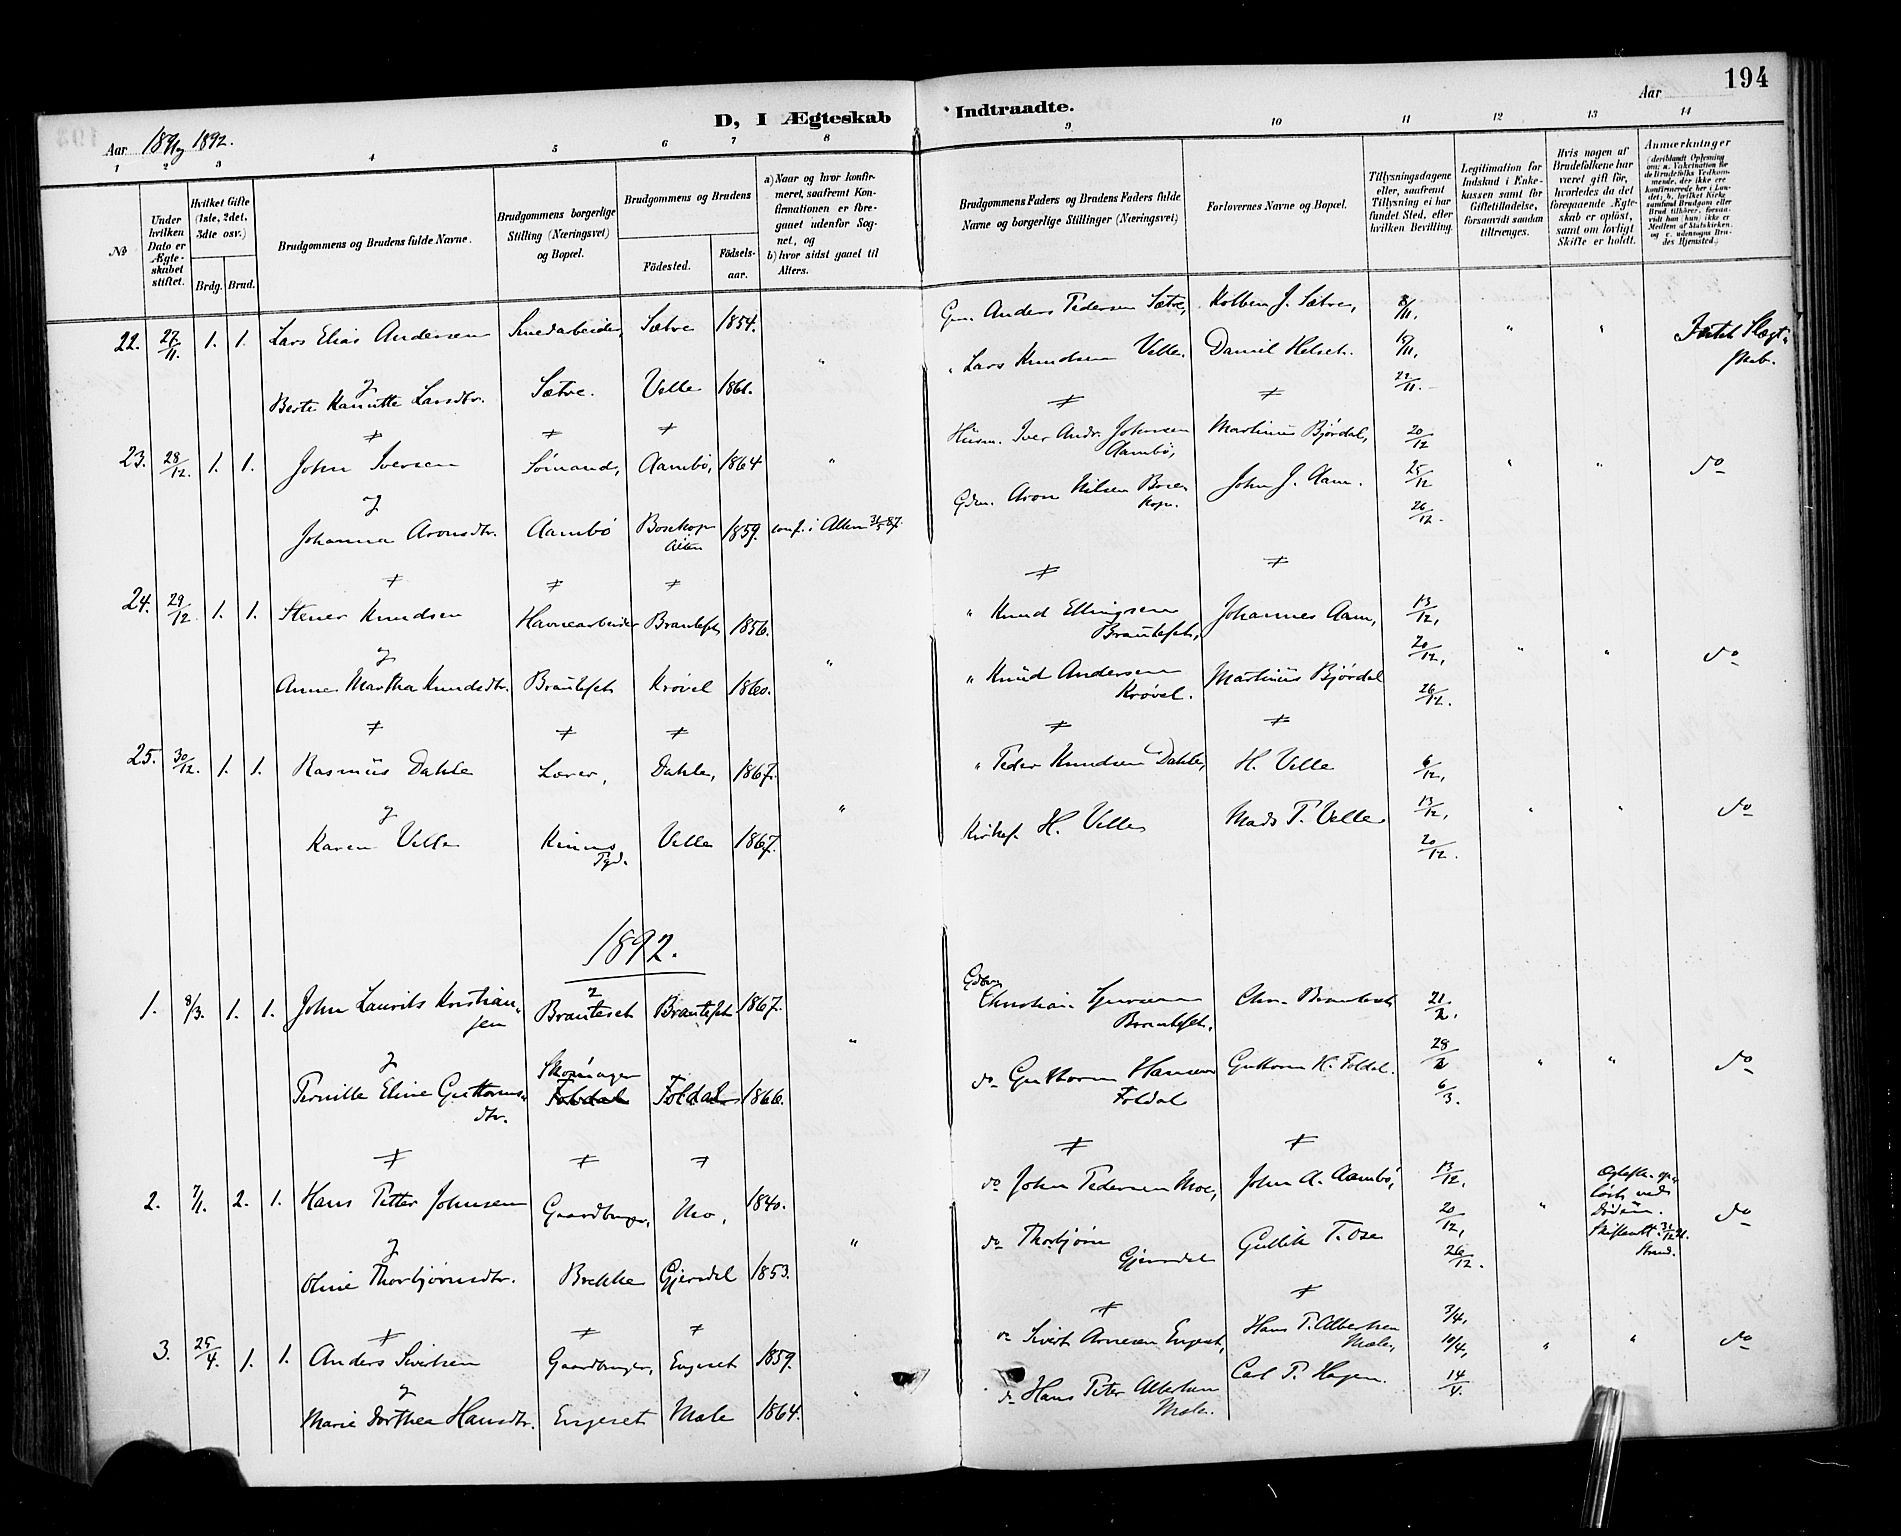 194
D, I Ægteskab Indtraadte.
Aar 1891 og 1892.
Aar
1 2 3 4 5 6 7 8 9 10 11 12 13 14
No
Under hvilken Dato er Ægteskabet stiftet.
Hvilket Gifte (1ste, 2det, 3die osv.)
Brdg. Brud.
Brudgommens og Brudens fulde Navne.
Brudgommens borgerlige Stilling (Næringsvei) og Bopæl.
Brudgommens og Brudens
Födested. Födsels-aar.
a) Naar og hvor konfirmeret, saafremt Konfirmationen er foregaaet udenfor Sognet, og
b) hvor sidst gaaet til Alters.
Brudgommens Faders og Brudens Faders fulde Navne og borgerlige Stillinger (Næringsvei)
Forlovernes Navne og Bopæl.
Tillysningsdagene eller, saafremt Tillysning ei har fundet Sted, efter hvilken Bevilling.
Legitimation for Indskud i Enkekassen samt for Giftetilladelse, forsaavidt saadan tiltrænges.
Hvis nogen af Brudefolkene har været gift før, hvorledes da det foregaaende Ægteskab er opløst, samt om lovligt Skifte er holdt.
Anmærkninger
22. 27/11. 1. 1. Lars Elias Andersen Smedarbeider, Sætre 1854. Gm. Anders Pedersen Sætre, Kolben J. Sætre, 8/11.
" Lars Knudsen Velle. Daniel Helset. 15/11, " "
& Berte Kanutte Larsdtr. Sætre. Velle 1861. 22/11.
23. 28/12. 1. 1. John Iversen Sømand, Aambø, 1864 " Husm. Iver Andr. Johnsen Aambø, Martinus Bjørdal, 20/12
Gdm. Aron Nilsen Bosekop. John J. Aam. 25/12 " " do
& Johanna Aronsdtr. Aambø Bosekop Alten 1859. conf. i Alten 26/12.
24. 29/12. 1. 1. Stener Knudsen Havnearbeider Brauteset 1856. " Knud Ellingsen Brauteset, Johannes Aam, 13/12,
20/12, " " do
& Anne Martha Knudsdtr. Brauteset Krøvel 1860. " Knud Andersen Krøvel. Martinus Bjørdal 26/12.
25. 30/12. 1. 1. Rasmus Dahle Lærer, Dahle, 1867. " Peder Knudsen Dahle, H. Velle 6/12,
13/12, " " do
& Karen Velle Kinns Pgd. Velle 1867. Kirkes. H. Velle Mads T. Velle 20/12.
1892.
1. 8/3. 1. 1. John Laurits Kristiansen Brauteset Brauteset 1867. Gdbr. Christian Brauteset. Chr. Brauteset 21/2,
28/2 " " do
& Pernille Eline Guttormsdtr. Skomager Foldal Foldal 1866. do Guttorm Hansen Foldal Guttorm K. Foldal. 6/3.
2. 7/1. 2. 1. Hans Petter Johnsen Gaardbruger, Mo, 1840. do John Pedersen Moe, John A. Aambø, 13/12,
20/12, " do
& Oline Thorbjørnsdtr. Brekke Gjersdal 1853. do Thorbjørn Gjersdal Gullik T. Ose 26/12.
3. 25/4. 1. 1. Anders Sivertsen Gaardbruger, Engeset 1859. do Sivert Arnesen Engeset, Hans P. Albertsen Mæle, 3/4,
10/4, " " do
& Marie Dorthea Hansdtr. Engeset Mæle 1864. do Hans Peter Albertsen Mæle. Carl P. Hagen. 14/4.